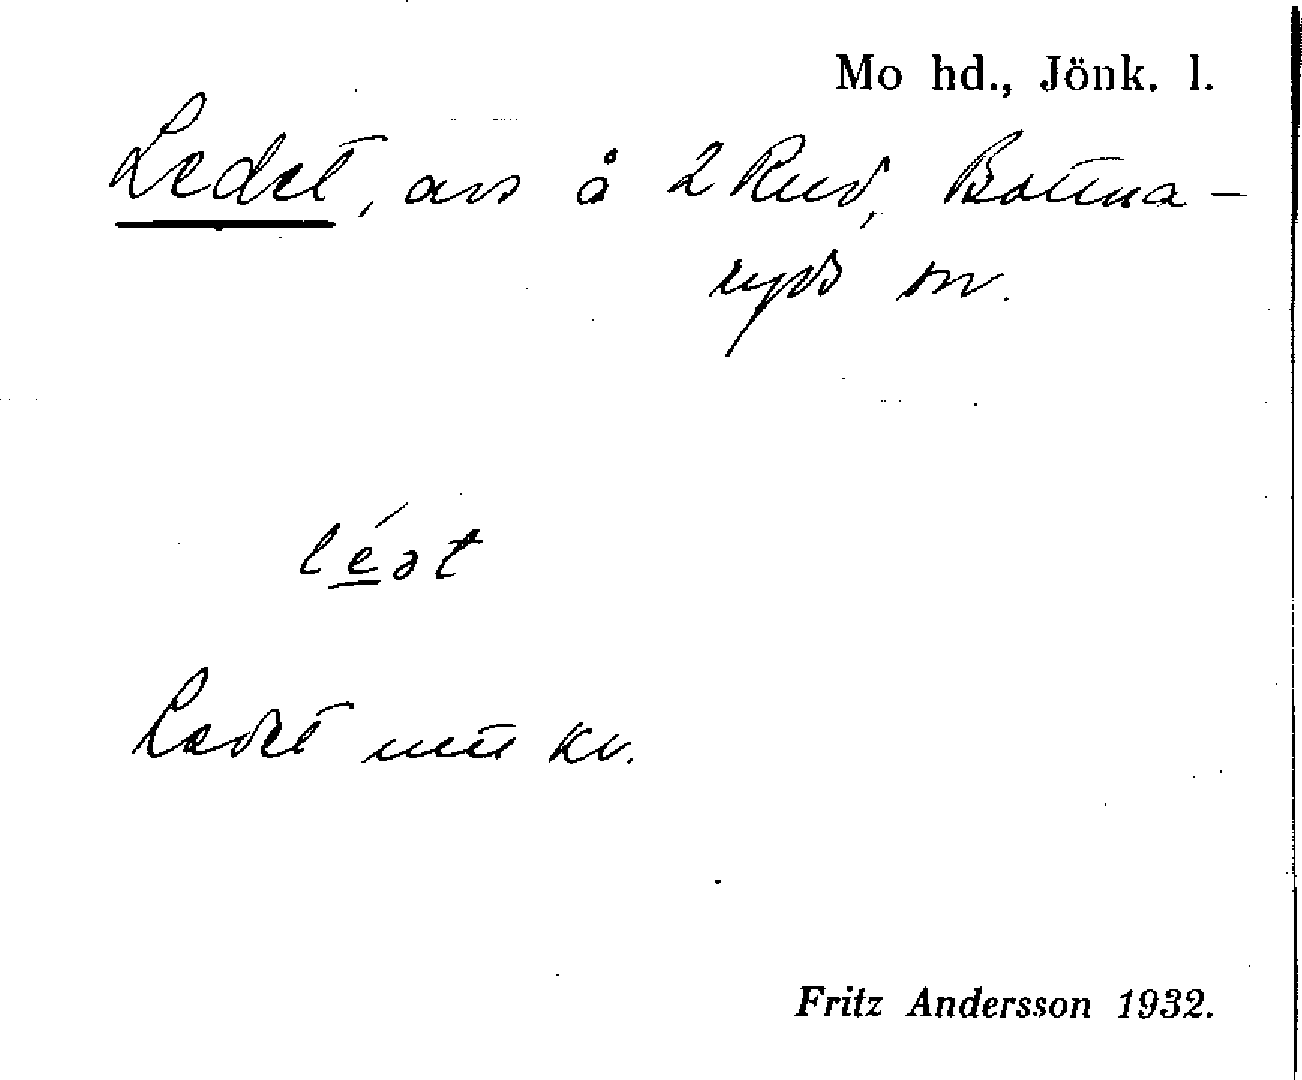 Mo hd., Jönk. l.
Ledet, avs å 2 Rud, Bottna-
ryds sn.
léət
Ledet mtu kv.
Fritz Andersson 1932.